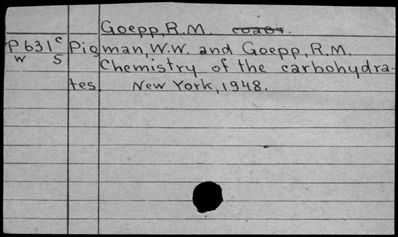 Goepp, R.M.
P631c Pigman, W.W. and Goepp, R.M.
W S Chemistry of the carbohydra-
tes. New York, 1948.